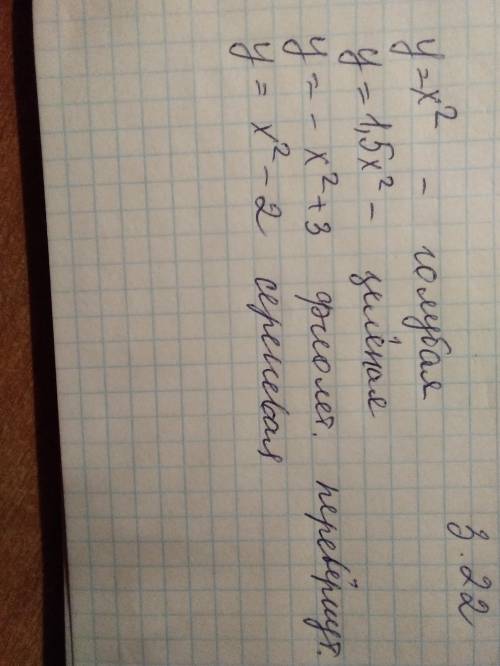 з. 22
y = x² - голубая
y = 1,5x² - зелёная
y = - x² + 3 фиолет. перевёрнут.
y = x² - 2 сереневая